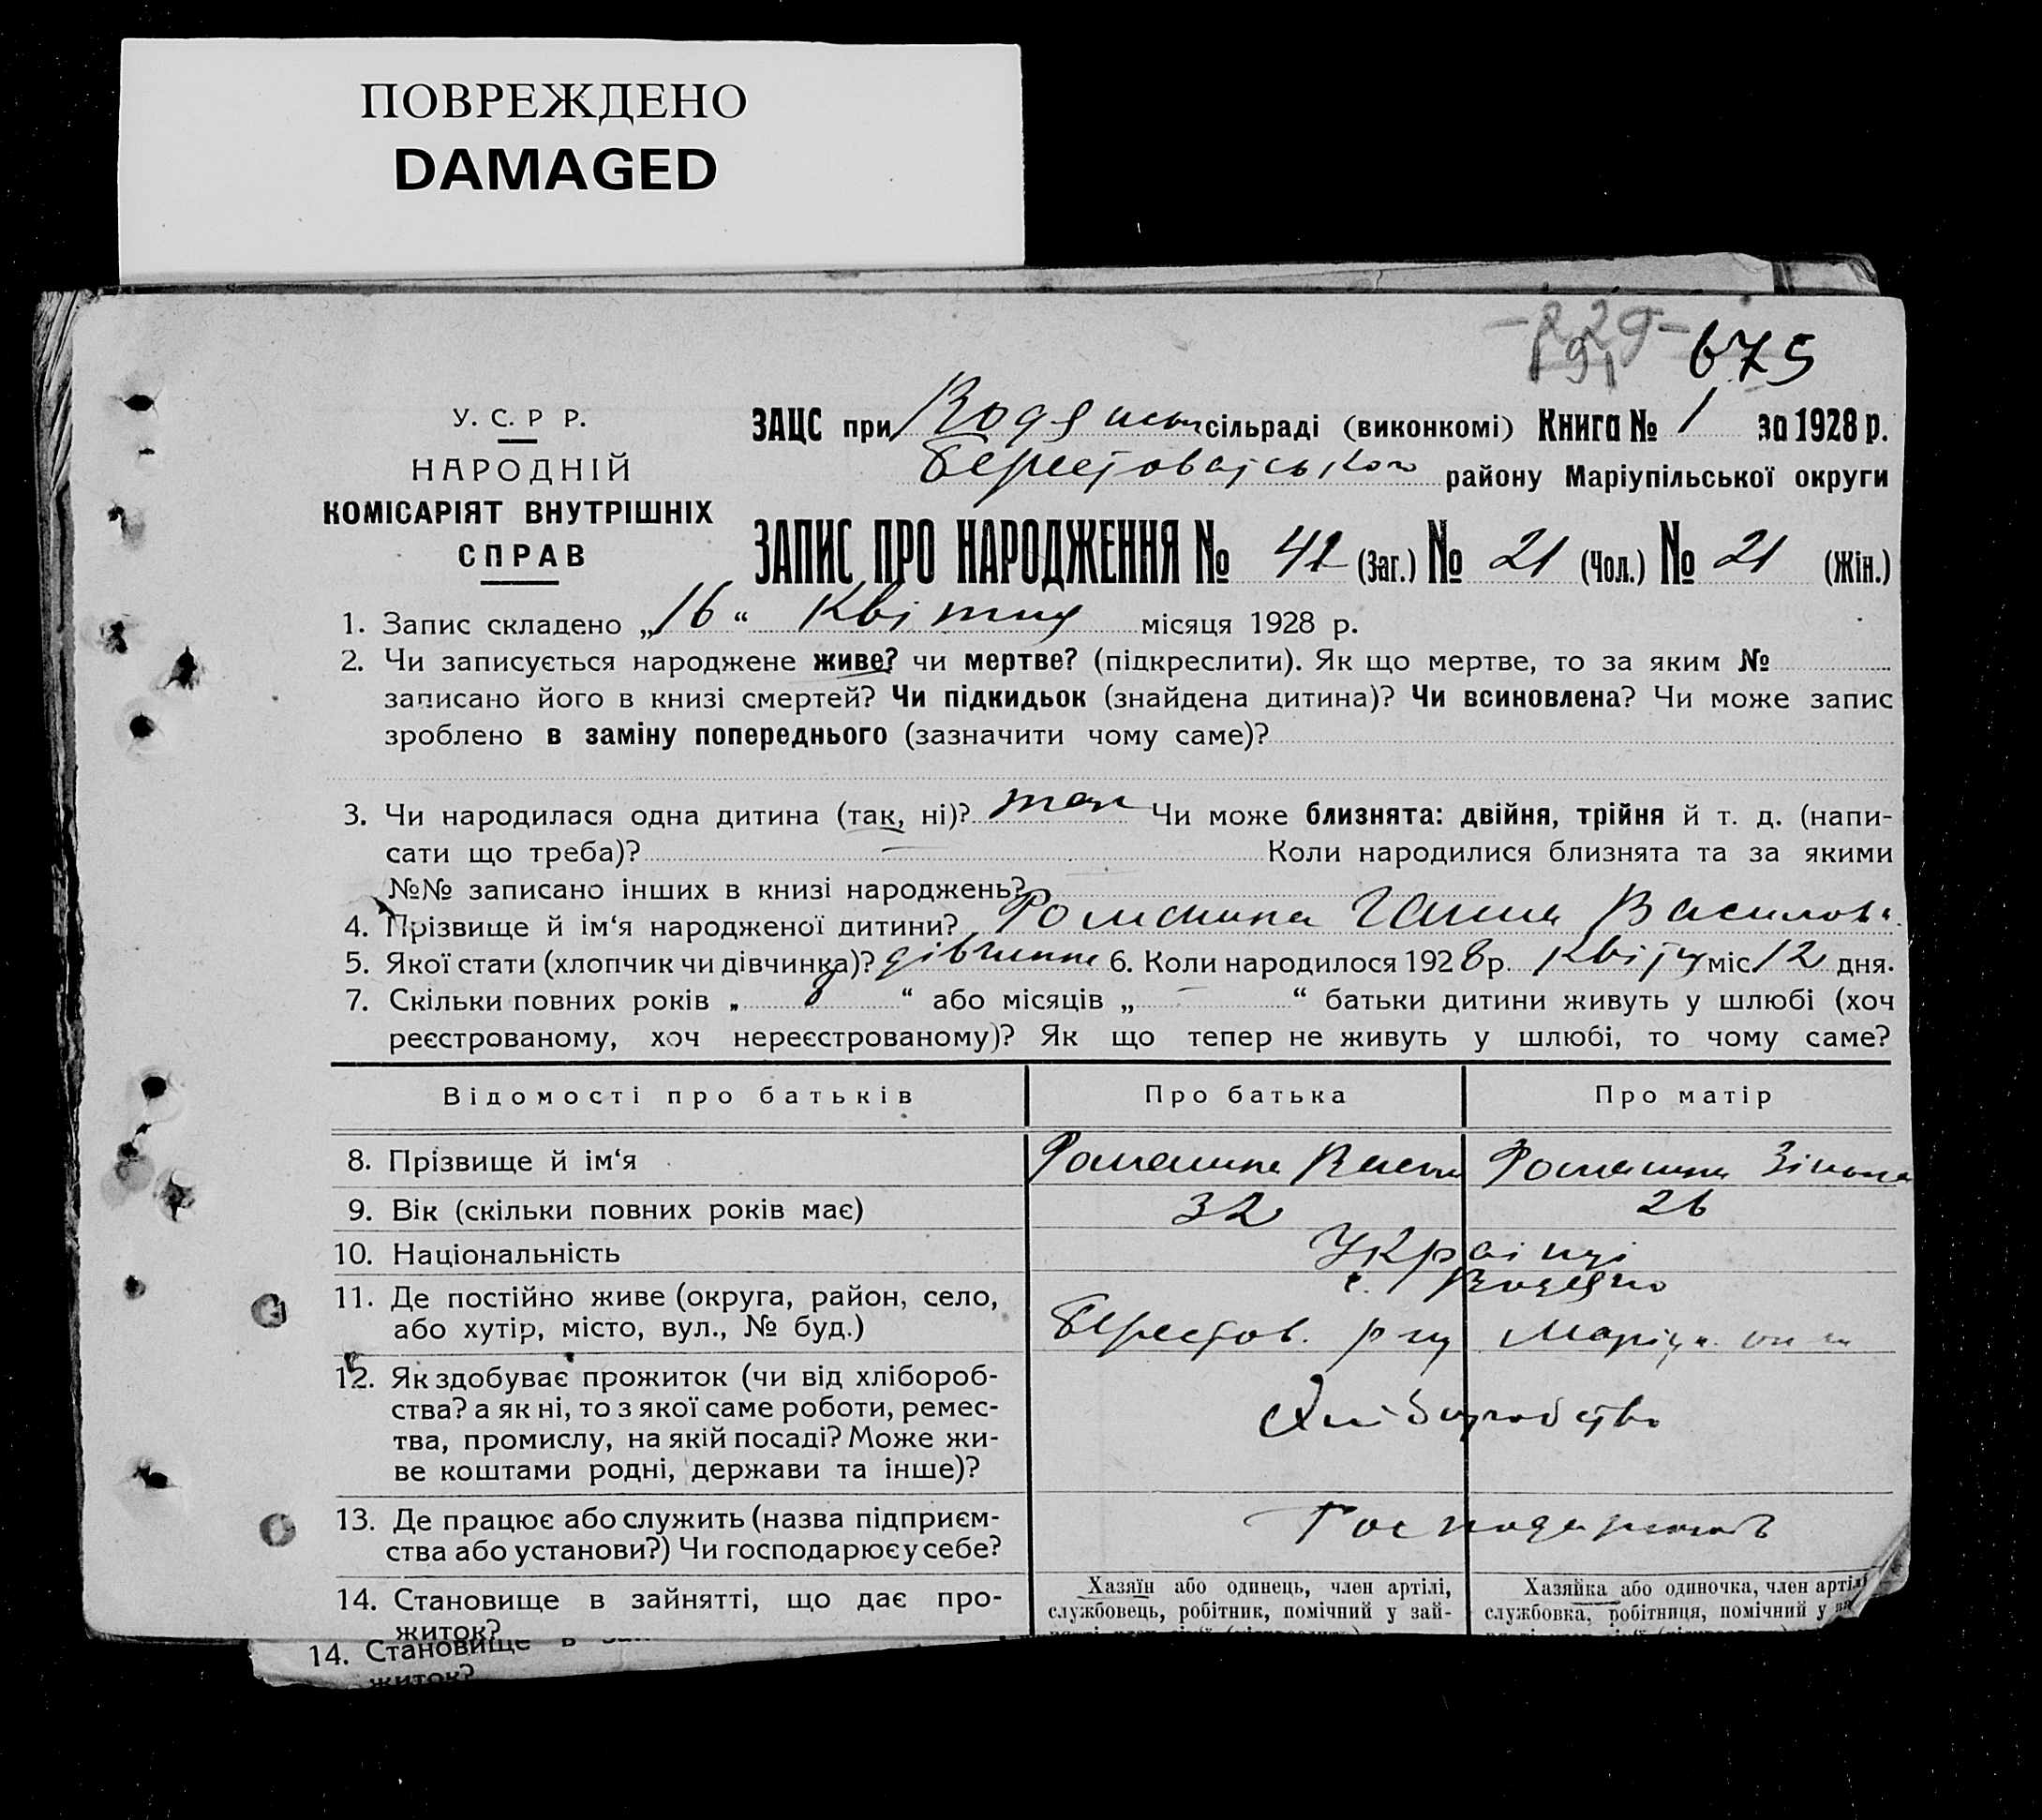 ПОВРЕЖДЕНО
DAMAGED
675
У. С. Р Р.
НАРОДНІЙ
КОМІСАРІЯТ ВНУТРІШНІХ
СПРАВ
ЗАЦС при сільраді (виконкомі) Книга № 1 за 1928 р.
району Маріупільської округи
ЗАПИС ПРО НАРОДЖЕННЯ № 42 (Заг.) № 21 (Чол.) № 21 (Жін.)
1. Запис складено „16“ Квітня місяця 1928 р.
2. Чи записується народжене живе? чи мертве? (підкреслити). Як що мертве, то за яким №
записано його в книзі смертей? Чи підкидьок (знайдена дитина)? Чи всиновлена? Чи може запис
зроблено в заміну попереднього (зазначити чому саме)?
3. Чи народилася одна дитина (так, ні)? так Чи може близнята: двійня, трійня й т. д. (напи-
сати що треба)? Коли народилися близнята та за якими
№№ записано інших в книзі народжень?
4. Прізвище й ім‘я народженої дитини? Романина Ганна
5. Якої стати (хлопчик чи дівчинка)? дівчинка 6. Коли народилося 1928 р. міс. 12 дня.
7. Скільки повних років „ 8 “ або місяців „ - “ батьки дитини живуть у шлюбі (хоч
реєстрованому, хоч нереєстрованому)? Як що тепер не живуть у шлюбі, то чому саме?
Відомості про батьків Про батька Про матір
8. Прізвище й ім‘я Романина Романина
9. Вік (скільки повних років має) 32 26
10. Національність Українці
11. Де постійно живе (округа, район, село, с. Водяно
або хутір, місто, вул., № буд.) Берестов.
12. Як здобуває прожиток (чи від хлібороб-
ства? а як ні, то з якої саме роботи, ремес- Хліборобство
тва, промислу, на якій посаді? Може жи-
ве коштами родні, держави та інше)?
13. Де працює або служить (назва підприєм-
ства або установи?) Чи господарює у себе?
14. Становище в зайнятті, що дає про- Хазяїн або одинець, член артілі, Хазяйка або одиночка, член артілі
житок? службовець, робітник, помічний у зай- службовка, робітниця, помічний у
14. Становище в
житок?